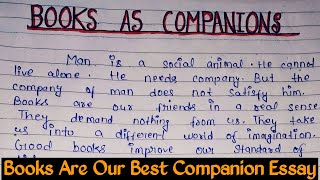 BOOKS AS COMPANIONS
Man is a social animal. He cannot
live alone. He needs company. But the
company of man does not satisfy him.
Books are our friends in a real sense
They demand nothing from us. They take
us into a different world of imagination.
Good books improve our standard of
Books Are Our Best Companion Essay